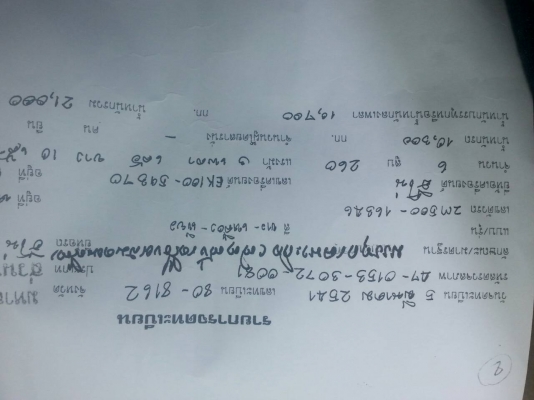 2
รายการจดทะเบียน
วันจดทะเบียน 5 มีนาคม 2541 เลขทะเบียน 80-8162 จังหวัด มหาส
รหัสตรวจสภาพ A7-0153-3072-0021 ประเภท ส่วน
ลักษณะ/มาตรฐาน ยี่ห้อรถ ฮีโน่
แบบ/รุ่น สี ขาว-เหลือง-
เลขตัวรถ 2M500-16826 อยู่ที่
ยี่ห้อเครื่องยนต์ ฮีโน่ เลขเครื่องยนต์ EK100-59370 อยู่ที่
จำนวน 6 สูบ 260 แรงม้า 3 เพลา 6 ล้อ 10 ยาง
น้ำหนักรถ 10,300 กก. จำนวนผู้โดยสารนั่ง - คน ยืน
น้ำหนักบรรทุกหรือน้ำหนักลงเพลา 10,700 กก. น้ำหนักรวม 21,000